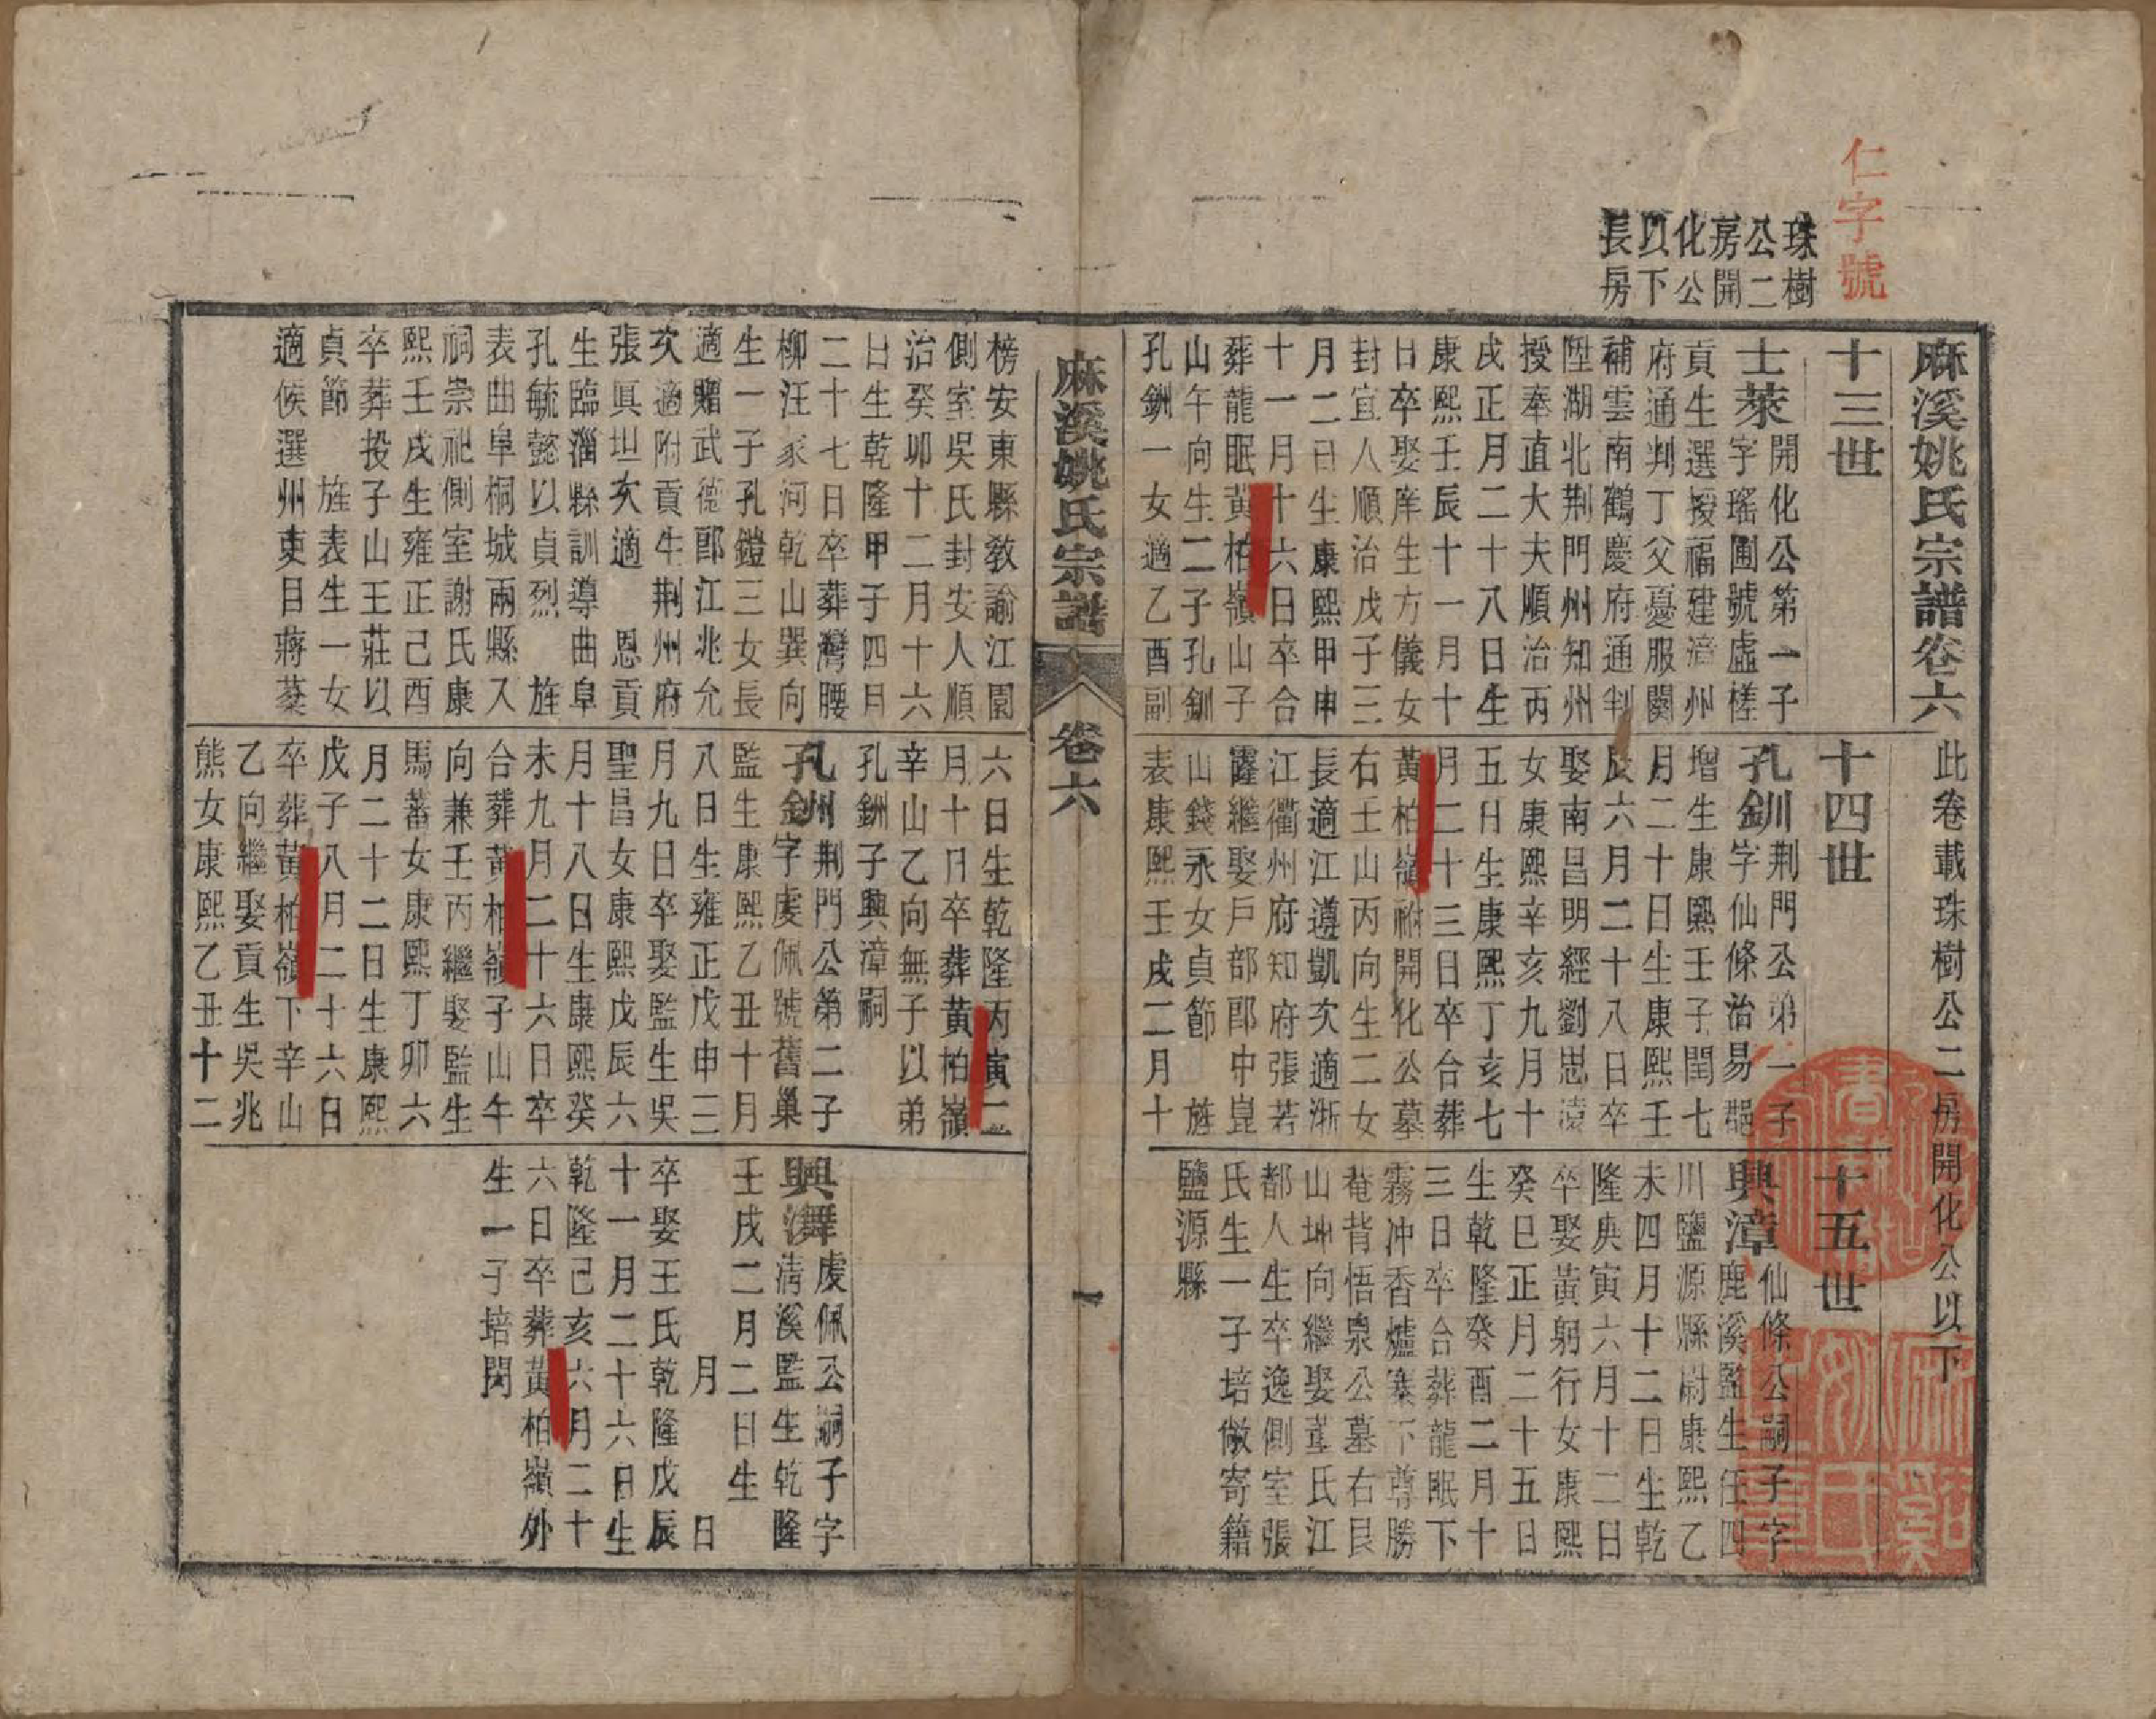 仁字號
珠樹
公二
房開
化公
以下
長房
麻溪姚氏宗譜卷六
此卷載珠樹公二房開化公以下
十三世
士萊
開化公第一子
字瑤圃號虛槎
貢生選授福建漳州
府通判丁父憂服闋
補雲南鶴慶府通判
陞湖北荆門州知州
授奉直大夫順治丙
戌正月二十八日生
康熙壬辰十一月十
日卒娶庠生方儀女
封宜人順治戊子三
月二日生康熙甲申
十一月十六日卒合
葬龍眠黃柏嶺山子
山午向生二子孔釧
孔鉶一女適乙酉副
十四世
孔釧
荆門公第一子
字仙條治易邑
增生康熙壬子閏七
月二十日生康熙壬
辰六月二十八日卒
娶南昌明經劉思遠
女康熙辛亥九月十
五日生康熙丁亥七
月二十三日卒合葬
黃柏嶺祔開化公墓
右壬山丙向生二女
長適江遵凱次適浙
江衢州府知府張若
霳繼娶戶部郎中崑
山錢永女貞節 旌
表康熙壬戌二月十
十五世
興漳
仙條公嗣子字
鹿溪監生任四
川鹽源縣尉康熙乙
未四月十二日生乾
隆庚寅六月十二日
卒娶黃躬行女康熙
癸巳正月二十五日
生乾隆癸酉二月十
三日卒合葬龍眠下
霧冲香爐寨下尊勝
菴背悟泉公墓右艮
山坤向繼娶葉氏江
都人生卒逸側室張
氏生一子培倣寄籍
鹽源縣
麻溪姚氏宗譜
卷六
一
榜安東縣教諭江園
側室吳氏封安人順
治癸卯十二月十六
日生乾隆甲子四月
二十七日卒葬灣腰
柳汪家河乾山巽向
生一子孔鐙三女長
適贈武德郎江兆允
次適附貢生荆州府
張眞坦次適 恩貢
生臨淄縣訓導曲阜
孔毓懿以貞烈 旌
表曲阜桐城兩縣入
祠崇祀側室謝氏康
熙壬戌生雍正己酉
卒葬投子山王莊以
貞節 旌表生一女
適候選州吏目蔣棻
六日生乾隆丙寅二
月十日卒葬黃柏嶺
辛山乙向無子以弟
孔鉶子興漳嗣
孔鉶
荆門公第二子
字虔佩號舊巢
監生康熙乙丑十月
八日生雍正戊申三
月九日卒娶監生吳
聖昌女康熙戊辰六
月十八日生康熙癸
未九月二十六日卒
合葬黃柏嶺子山午
向兼壬丙繼娶監生
馬蕃女康熙丁卯六
月二十二日生康熙
戊子八月二十六日
卒葬黃柏嶺下辛山
乙向繼娶貢生吳兆
熊女康熙乙丑十二
興
虔佩公嗣子字
清溪監生乾隆
壬戌二月二日生
月 日
卒娶王氏乾隆戊辰
十一月二十六日生
乾隆己亥六月二十
六日卒葬黃柏嶺外
生一子培閎